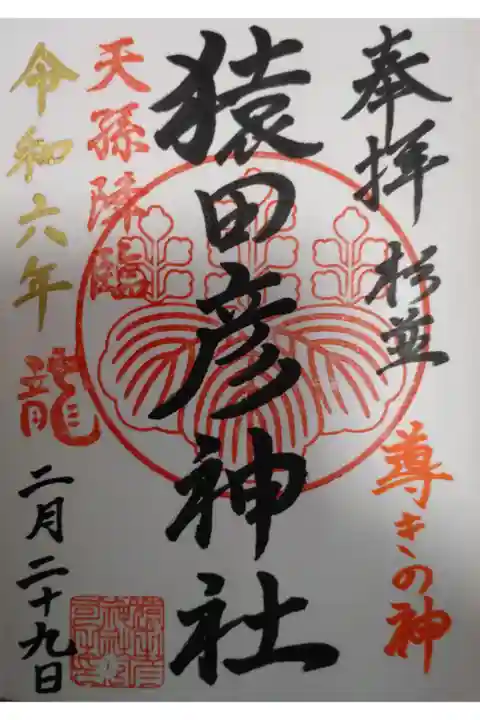 奉拝 杉並
尊きの神
猿田彦神社
天孫降臨
令和六年
龍
二月二十九日